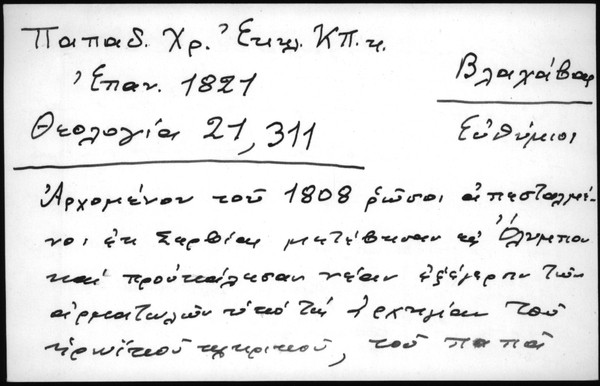 Παπαδ. Χρ. Ἐκκλ. ΚΠ. κ.
Ἐπαν. 1821
Θεολογία 21, 311
Βλαχάβας
Εὐθύμιος
Ἀρχομένου τοῦ 1808 ῥῶσοι ἀπεσταλμέ-
νοι ἐκ Σερβίας μετέβησαν εἰς Ὄλυμπον
καί προὐκάλεσαν νέαν ἐξέγερσιν τῶν
ἁρματωλῶν ὑπό τήν ἀρχηγίαν τοῦ
ἡρωϊκοῦ κληρικοῦ, τοῦ παπᾶ